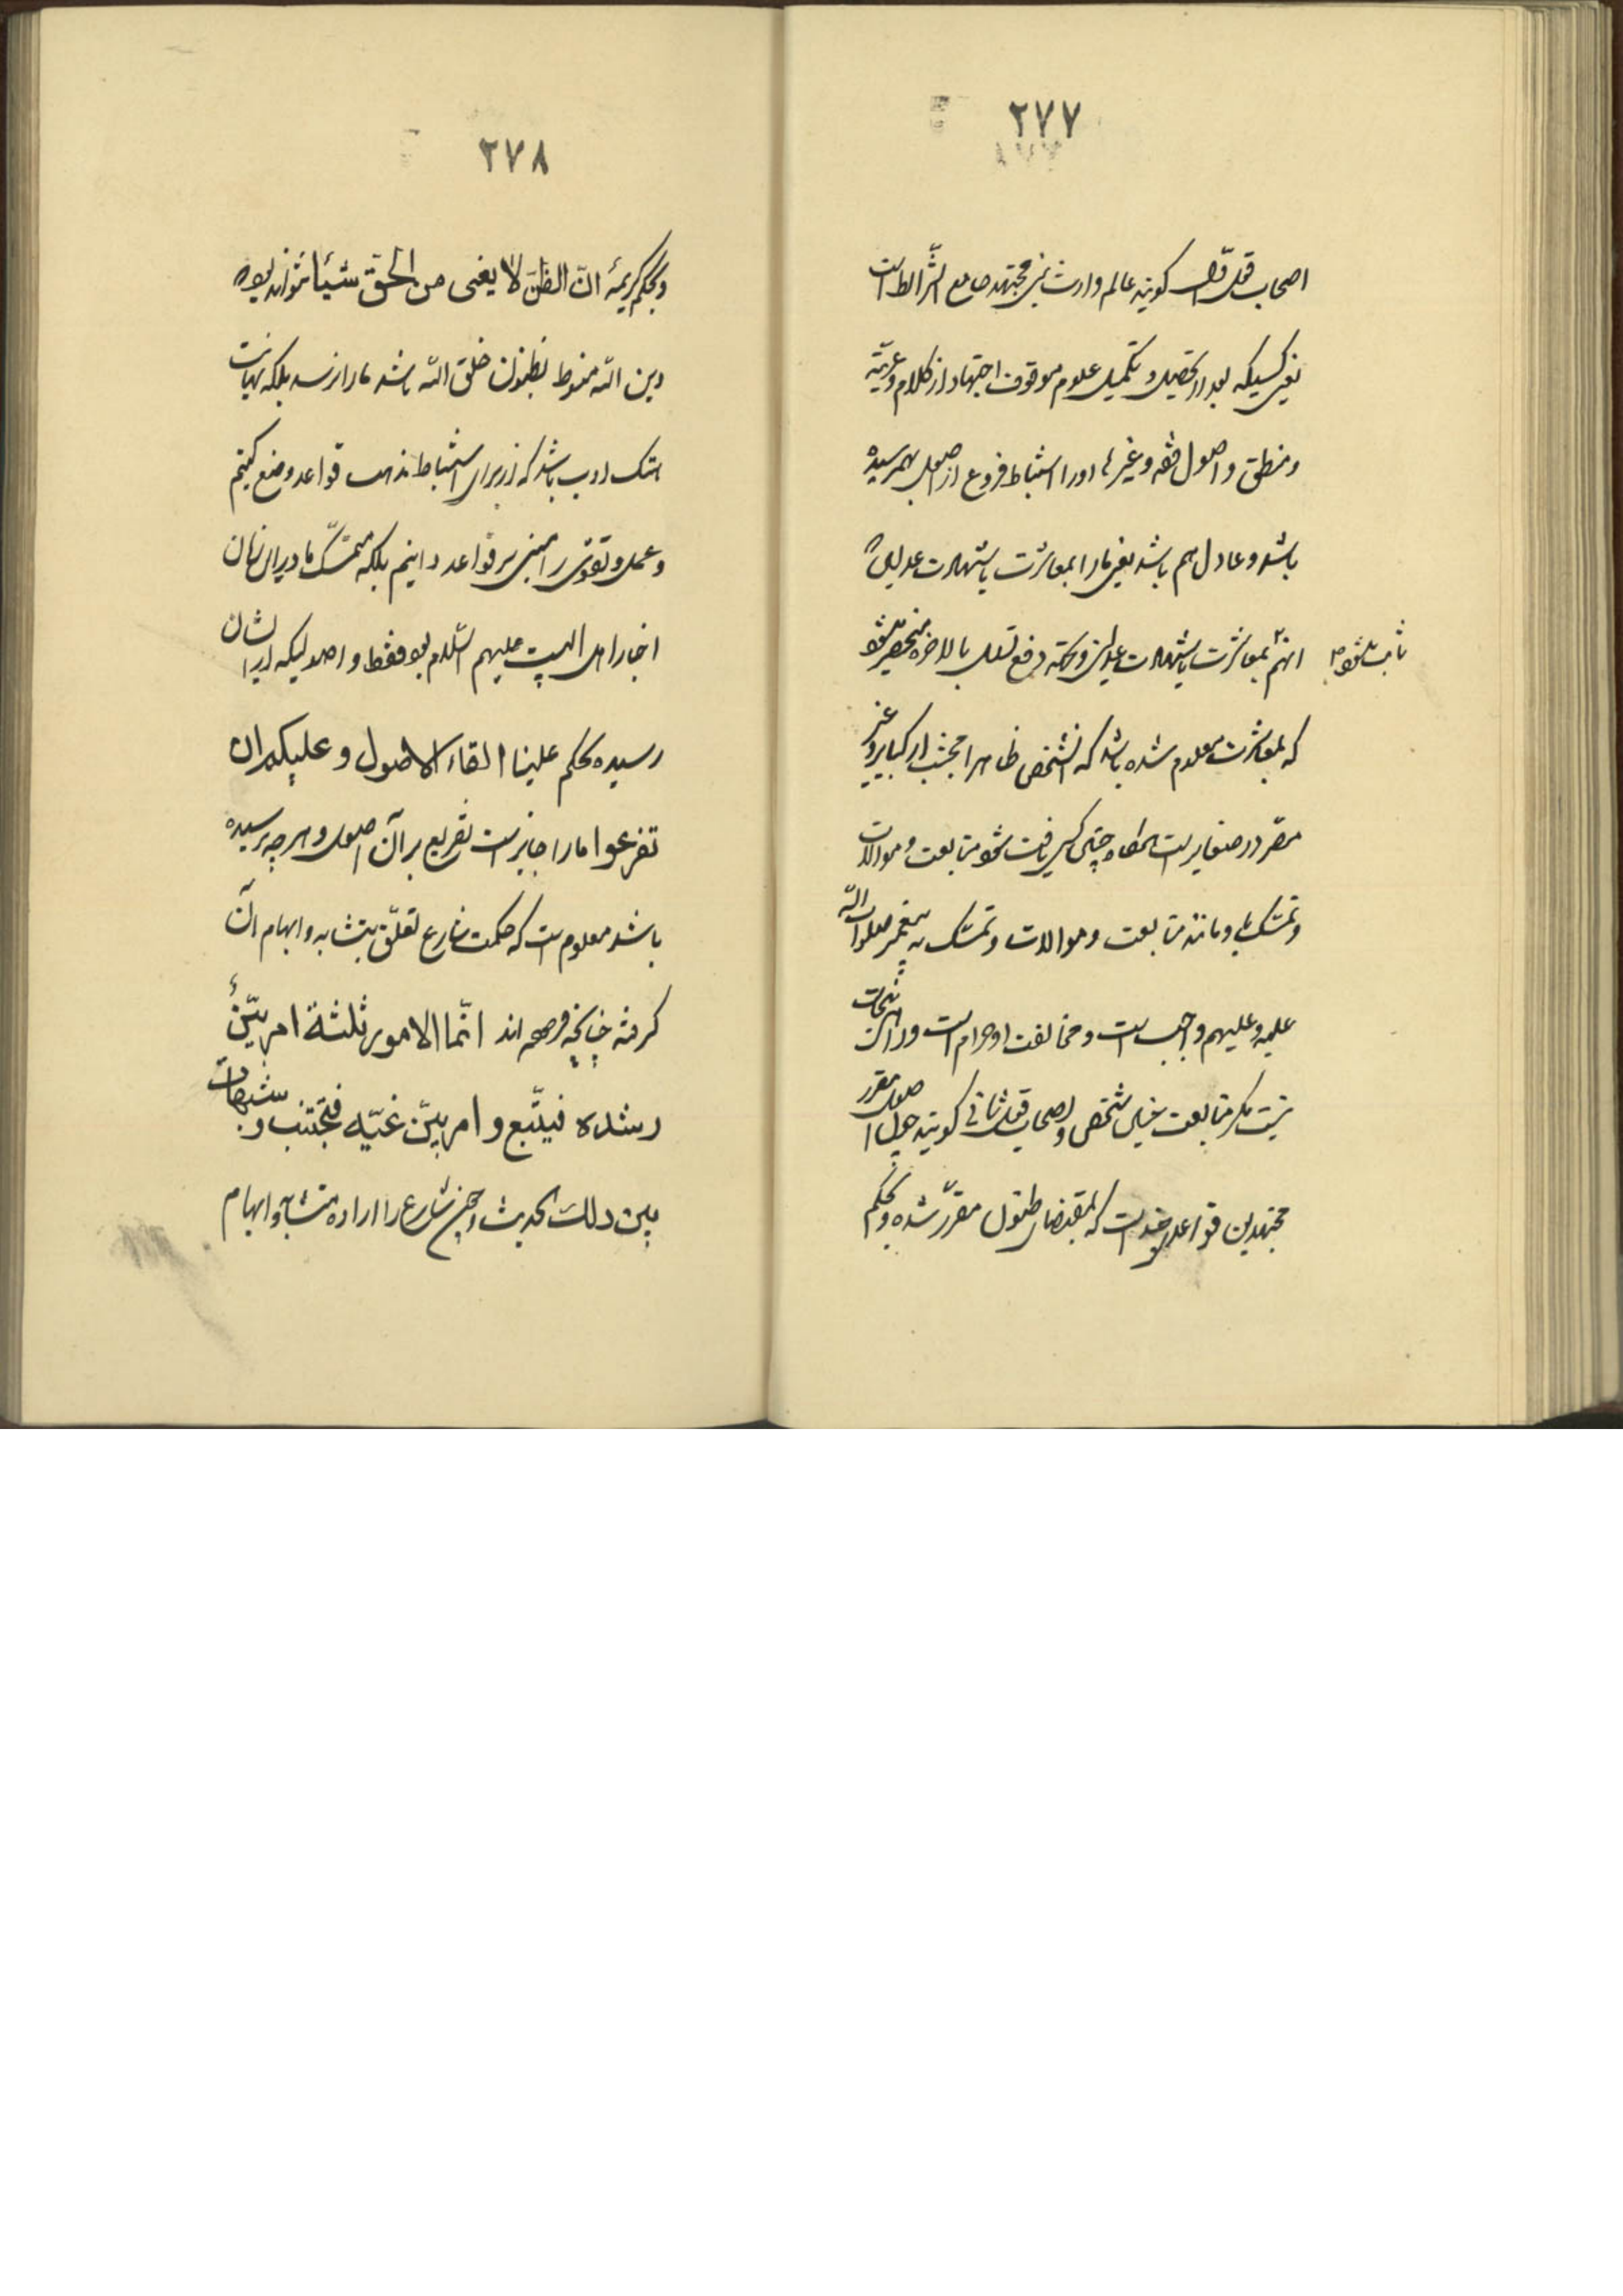 ۲۷۷
اصحاب قول اوّل گویند عالم وارث نبی مجتهد جامع الشرایط است
یعنی کسیکه بعد از تحصیل و تکمیل علوم موقوف اجتهاد از کلام و عربیّه
و منطق و اصول فقه و غیرها او را استنباط فروع از اصول بهمرسیده
باشد و عادل هم باشد یعنی ما را بمعاشرت یا شهادت عدلین
ثابت شود
اینهم بمعاشرت یا شهادت عدلین و کنه رفع تسلسل بالاخره منحصر میشود
که بمعاشرت معلوم شده باشد که آنشخص ظاهرا مجتنب از کبایر و غیر
مصّر در صغایر است هرگاه چنین کسی یافت شود متابعت و موالات
و تمسّک باو مانند متابعت و موالات و تمسّک به پیغمبر صلوات الله
علیه و علیهم واجب است و مخالفت او حرام است و راه نجات
نیست مگر متابعت چنین شخص و اصحاب قول ثانی گویند چون اصول مقرر
مجتهدین قواعد چند است که بمقتضای ظنون مقرّر شده و بحکم
۲۷۸
و بحکم کریمهٔ انّ الظنّ لا یغنی من الحقّ شیئا نتواند بود که
دین الله منوط بظنون خلق الله باشد ما را نرسد بلکه نهایت
هتک ادب باشد که از برای استنباط مذهب قواعد وضع کنیم
و عمل و تقوی را مبنی بر قواعد دانیم بلکه متمسّک ما در این زمان
اخبار اهل البیت علیهم السّلام بود فقط و اصولیکه از ایشان
رسیده بحکم علینا القاء الاصول و علیکم ان
تفرعوا ما را جایز است تفریع بر آن اصول و هر چه نرسیده
باشد معلوم است که حکمت شارع تعلّق بتشابه و ابهام آن
گرفته چنانچه فرموده اند انّما الامور ثلثة امر بیّنٌ
رشده فیتّبع و امر بیّن غیّه فیجتنب و شبهات
بین ذلک الحدیث و چون شارع را اراده تشابه و ابهام